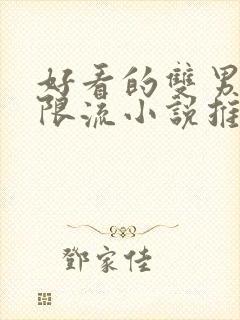 好看的雙男
限流小說推
鄧家佳